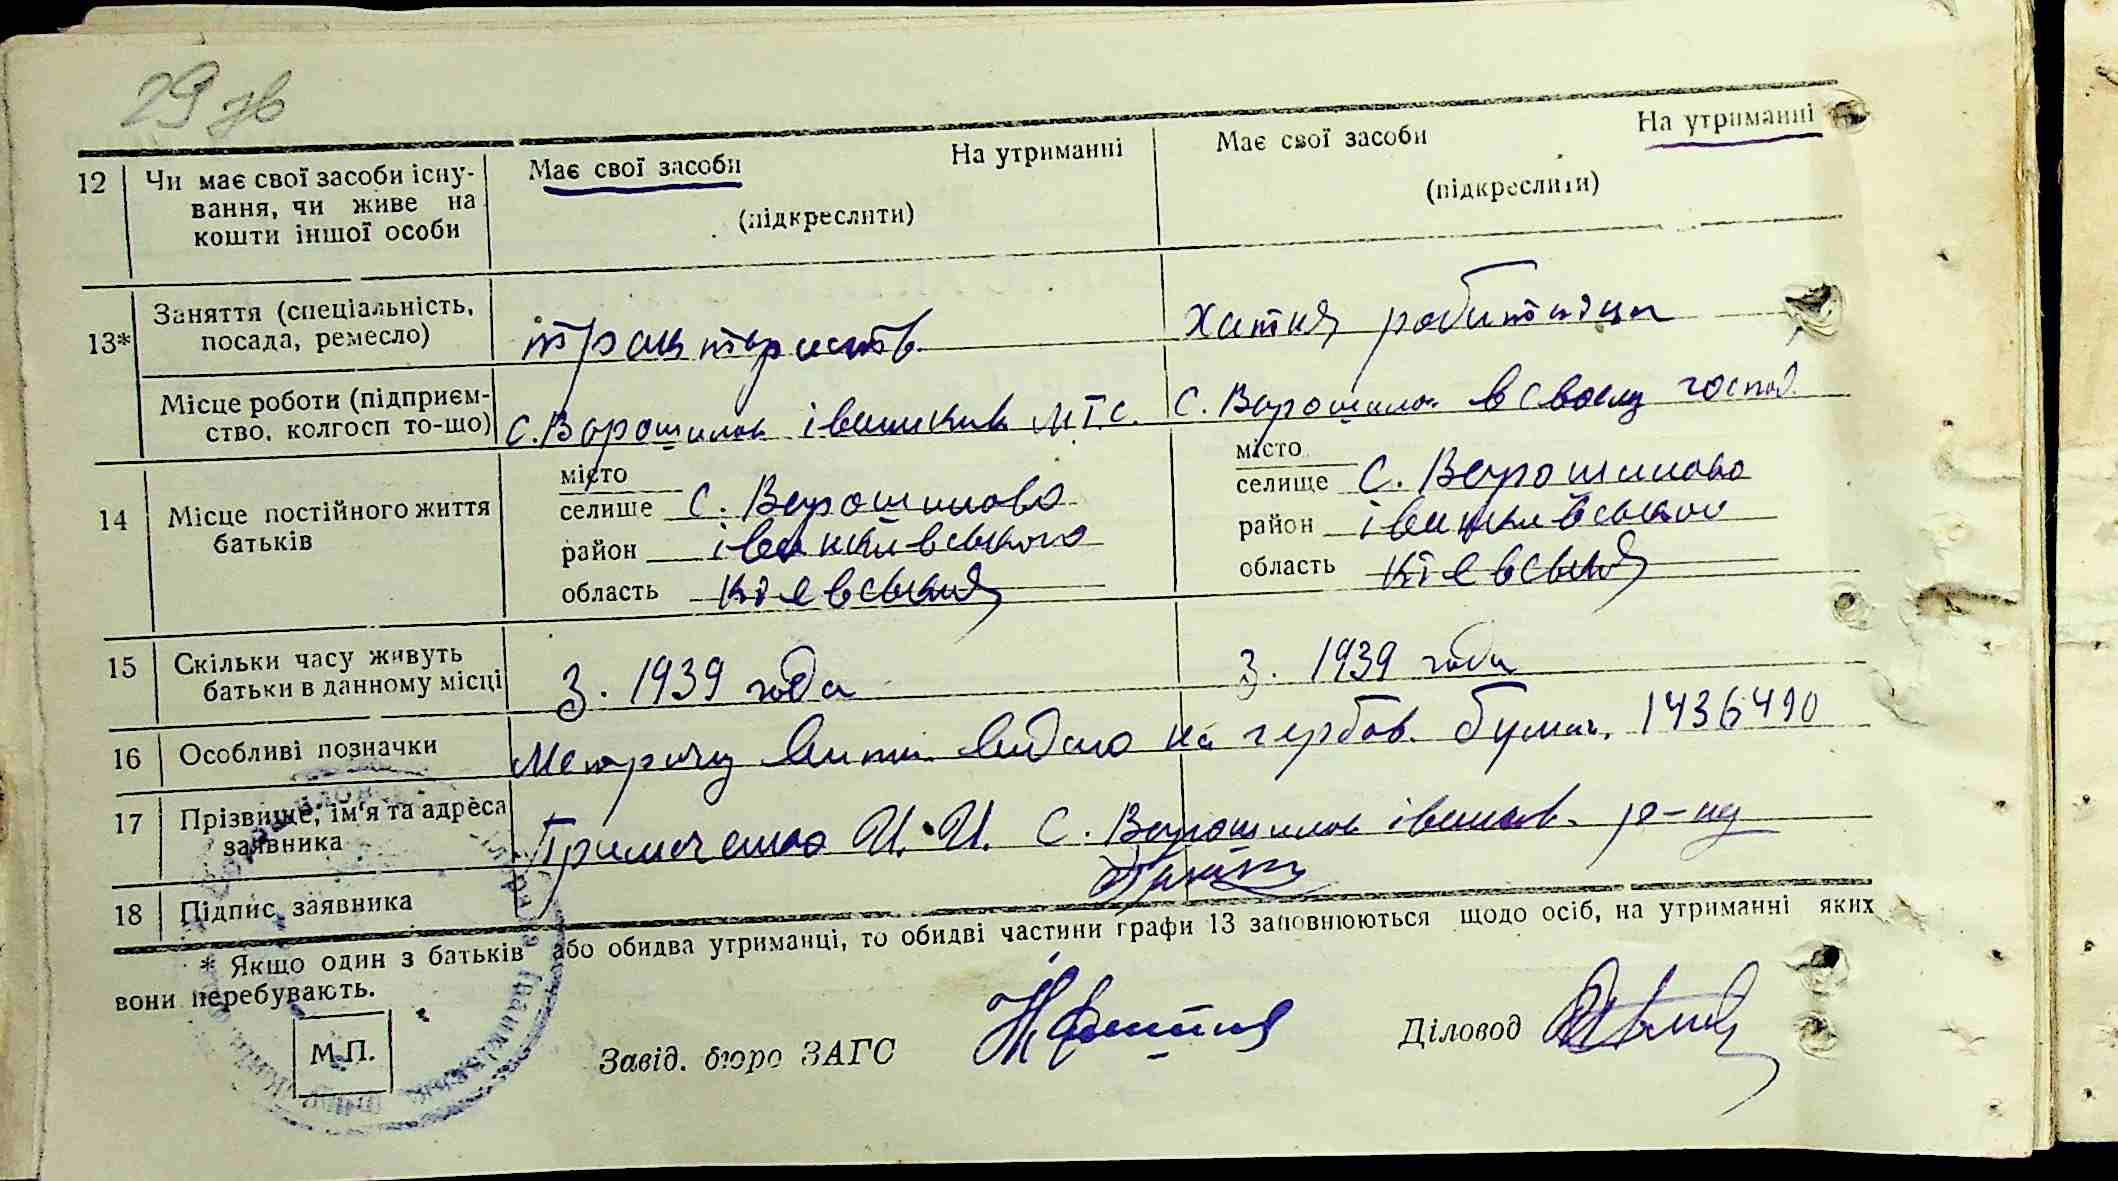 29 зв
12 Чи має свої засоби існу- Має свої засоби На утриманні Має свої засоби На утриманні
вання, чи живе на (підкреслити) (підкреслити)
кошти іншої особи
13* Заняття (спеціальність, посада, ремесло) тракторист Хатня робитниця
Місце роботи (підприєм-
ство, колгосп то-що) С. Ворошилов МТС. С. Ворошилов в своему господ.
14 Місце постійного життя батьків
місто місто
селище С. Ворошилово селище С. Ворошилово
район район
область Кієвська область Кієвська
15 Скільки часу живуть
батьки в данному місці З. 1939 года З. 1939 года
16 Особливі позначки на гербов. бумаг. 1436490
17 Прізвище, ім'я та адреса
заявника И. И. С. Ворошилов р-ну
18 Підпис заявника
* Якщо один з батьків або обидва утриманці, то обидві частини графи 13 заповнюються щодо осіб, на утриманні яких
вони перебувають.
М.П.
Завід. бюро ЗАГС Діловод